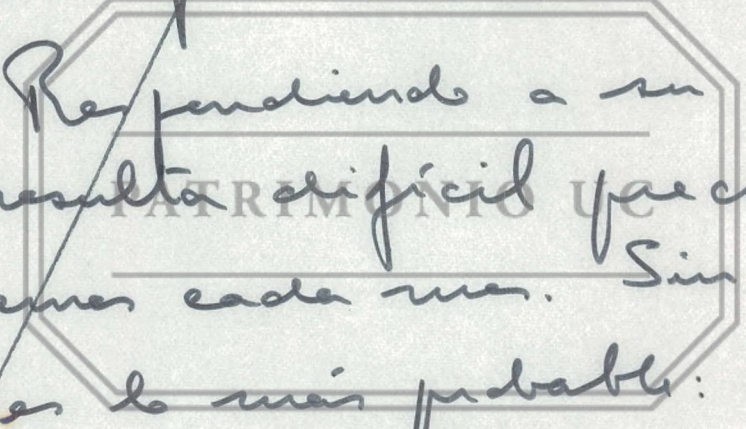 Respondiendo a su
resulta difícil prec
PATRIMONIO UC
emos cada mes. Sin
es lo más probable: